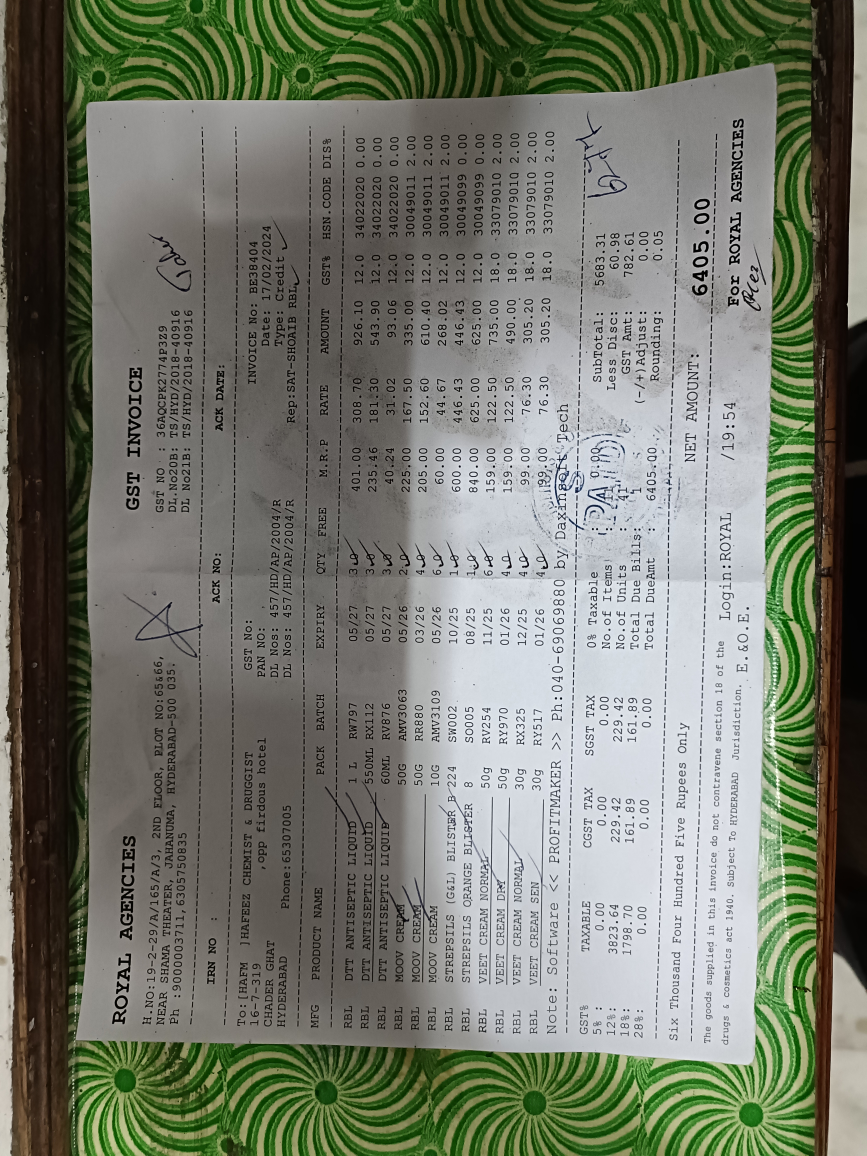 ROYAL AGENCIES GST INVOICE
H.NO:19-2-29/A/165/A/3, 2ND FLOOR, PLOT NO:65&66, GST NO : 36AQCPK2774P3Z9
NEAR SHAMA THEATER, JAHANUMA, HYDERABAD-500 035. DL.No20B: TS/HYD/2018-40916
Ph :90000003711,6305750835 DL No21B: TS/HYD/2018-40916
IRN NO : ACK NO: ACK DATE:
To:[HAFM ]HAFEEZ CHEMIST & DRUGGIST GST No: INVOICE No: BE38404
16-7-319 ,opp firdous hotel PAN NO: Date: 17/02/2024
CHADER GHAT DL Nos: 457/HD/AP/2004/R Type: Credit
HYDERABAD Phone:65307005 DL Nos: 457/HD/AP/2004/R Rep:SAT-SHOAIB RBL
MFG PRODUCT NAME PACK BATCH EXPIRY QTY FREE M.R.P RATE AMOUNT GST% HSN.CODE DIS%
RBL DTT ANTISEPTIC LIQUID 1 L RW797 05/27 3 401.00 308.70 926.10 12.0 34022020 0.00
RBL DTT ANTISEPTIC LIQUID 550ML RX112 05/27 3 235.46 181.30 543.90 12.0 34022020 0.00
RBL DTT ANTISEPTIC LIQUID 60ML RV876 05/27 3 40.24 31.02 93.06 12.0 34022020 0.00
RBL MOOV CREAM 50G AMV3063 05/26 2 225.00 167.50 335.00 12.0 30049011 2.00
RBL MOOV CREAM 50G RR880 03/26 4 205.00 152.60 610.40 12.0 30049011 2.00
RBL MOOV CREAM 10G AMV3109 05/26 6 60.00 44.67 268.02 12.0 30049011 2.00
RBL STREPSILS (G&L) BLISTER B 224 SW002 10/25 1 600.00 446.43 446.43 12.0 30049099 0.00
RBL STREPSILS ORANGE BLISTER 8 SO005 08/25 1 840.00 625.00 625.00 12.0 30049099 0.00
RBL VEET CREAM NORMAL 50g RV254 11/25 6 159.00 122.50 735.00 18.0 33079010 2.00
RBL VEET CREAM DRY 50g RY970 01/26 4 159.00 122.50 490.00 18.0 33079010 2.00
RBL VEET CREAM NORMAL 30g RX325 12/25 4 99.00 76.30 305.20 18.0 33079010 2.00
RBL VEET CREAM SEN 30g RY517 01/26 4 99.00 76.30 305.20 18.0 33079010 2.00
Note: Software << PROFITMAKER >> Ph:040-69069880 by Daxinsoft Tech
GST% TAXABLE CGST TAX SGST TAX 0% Taxable : 0.00 SubTotal: 5683.31
5% : 0.00 0.00 0.00 No.of Items: Less Disc: 60.98
12%: 3823.64 229.42 229.42 No.of Units : 41 GST Amt: 782.61
18%: 1798.70 161.89 161.89 Total Due Bills: 1 (-/+)Adjust: 0.00
28%: 0.00 0.00 0.00 Total DueAmt : 6405.00 Rounding: 0.05
PAID
Six Thousand Four Hundred Five Rupees Only NET AMOUNT: 6405.00
The goods supplied in this invoice do not contravene section 18 of the Login:ROYAL /19:54 For ROYAL AGENCIES
drugs & cosmetics act 1940. Subject To HYDERABAD Jurisdiction. E.&O.E.